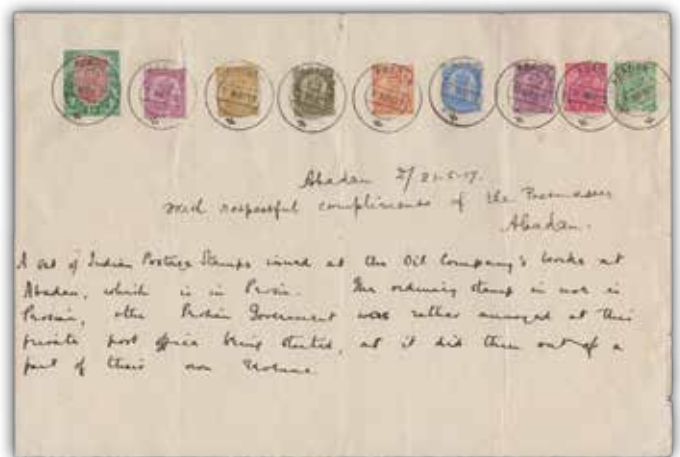 Abadan 21-5-17.
with respectful compliments of the Postmaster
Abadan.
A set of Indian Postage Stamps issued at the Oil Company's works at
Abadan, which is in Persia. The ordinary stamp is not in
Persian, the Persian Government was rather annoyed at this
private post office being started, as it did them out of a
part of their own